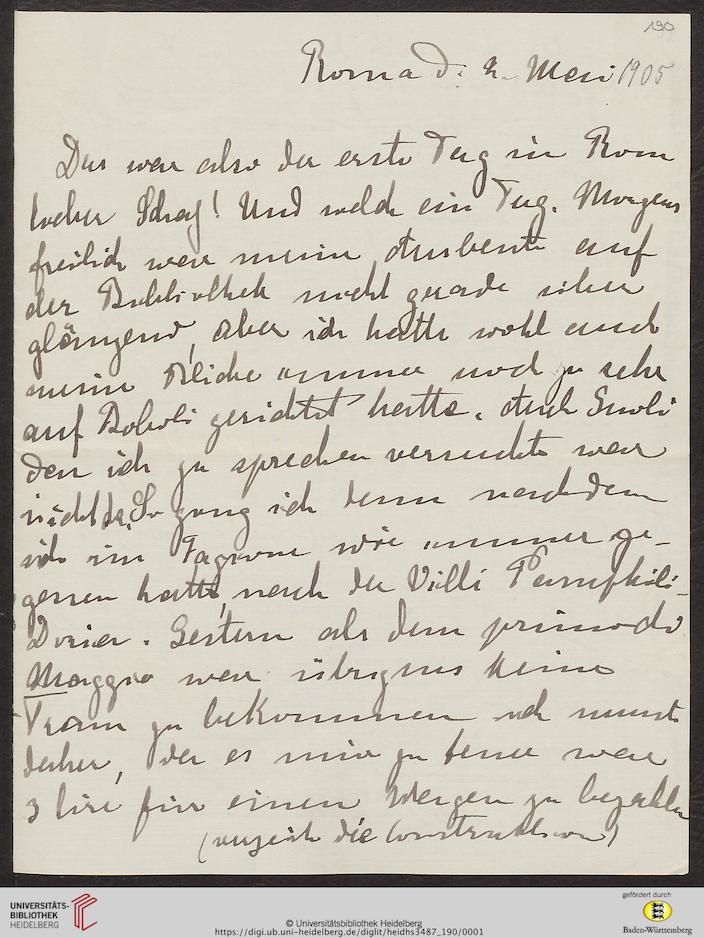 190
Roma d. 2. Mai 1905
Das war also der erste Tag in Rom
lieber Schatz! Und welch ein Tag. Morgens
freilich war meine Ausbeute auf
der Bibliothek nicht gerade sehr
glänzend, aber ich hatte wohl auch
meine Blicke immer noch zu sehr
auf Boboli gerichtet hatte. Auch
den ich zu sprechen versuchte war
nicht da. So ging ich denn nachdem
ich im Fagiano wie immer ge-
gessen hatte, nach der Villa Pamphili-
Doria. Gestern als dem primo di
Maggio war übrigens keine
Tram zu bekommen ich musste
daher, da es mir zu teuer war
3 lire für einen Wagen zu bezahlen
(verzeih die Construktion)
UNIVERSITÄTS-
BIBLIOTHEK
HEIDELBERG
© Universitätsbibliothek Heidelberg
https://digi.ub.uni-heidelberg.de/diglit/heidhs3487_190/0001
gefördert durch
Baden-Württemberg